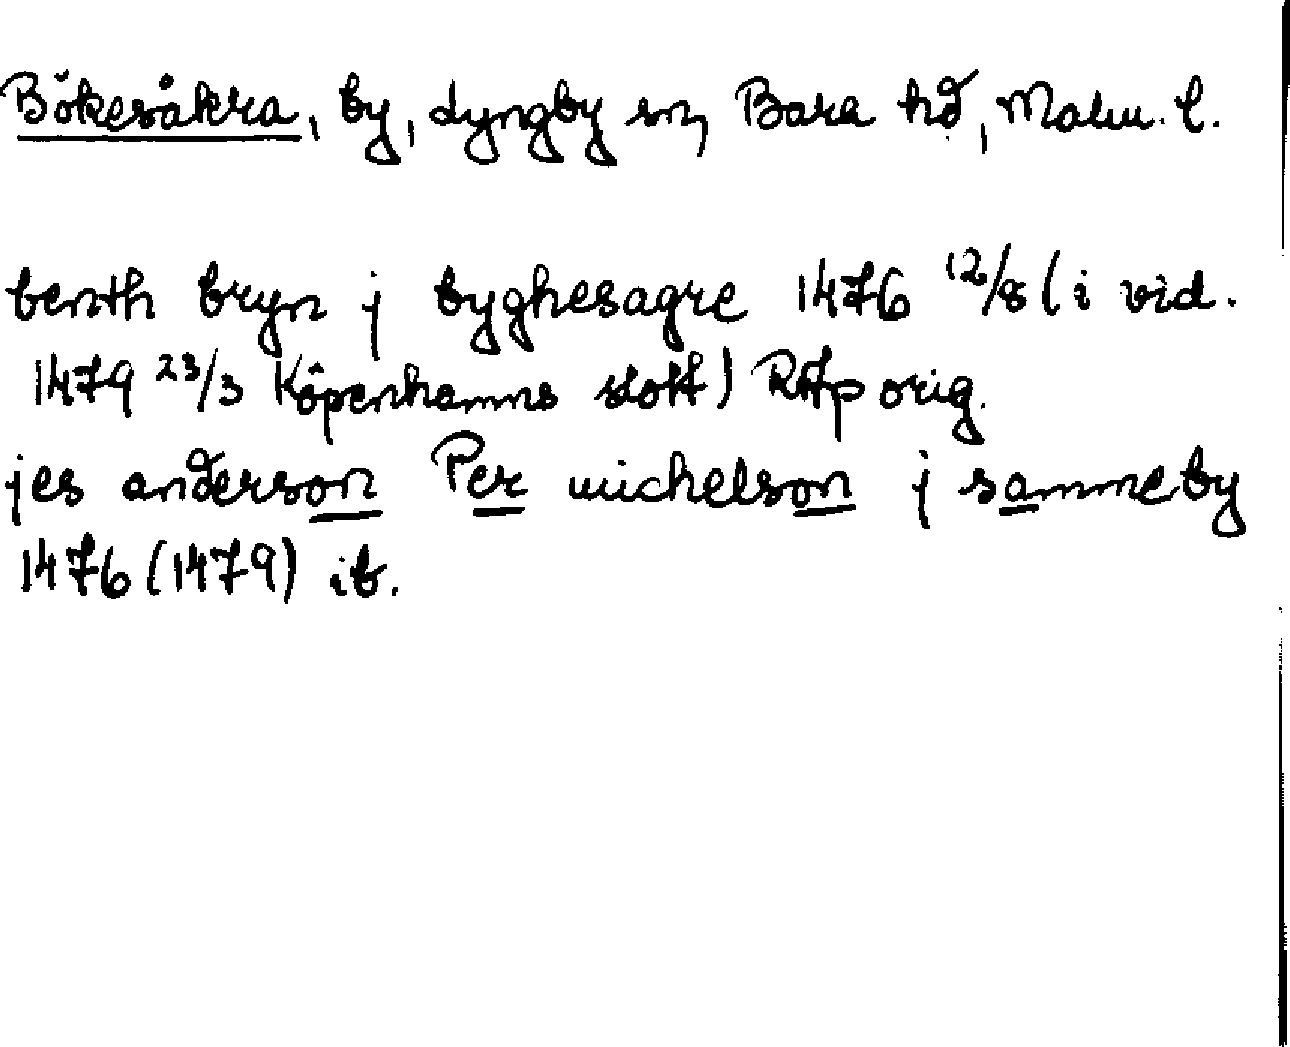 Bökesåkra, by, Lyngby sn, Bara hd, Malm. l.
benth bryn j byghesagre 1476 12/8 (i vid.
1479 23/3 Köpenhamns slott) RAp orig.
jes anderson Per michelson j samme by
1476 (1479) ib.